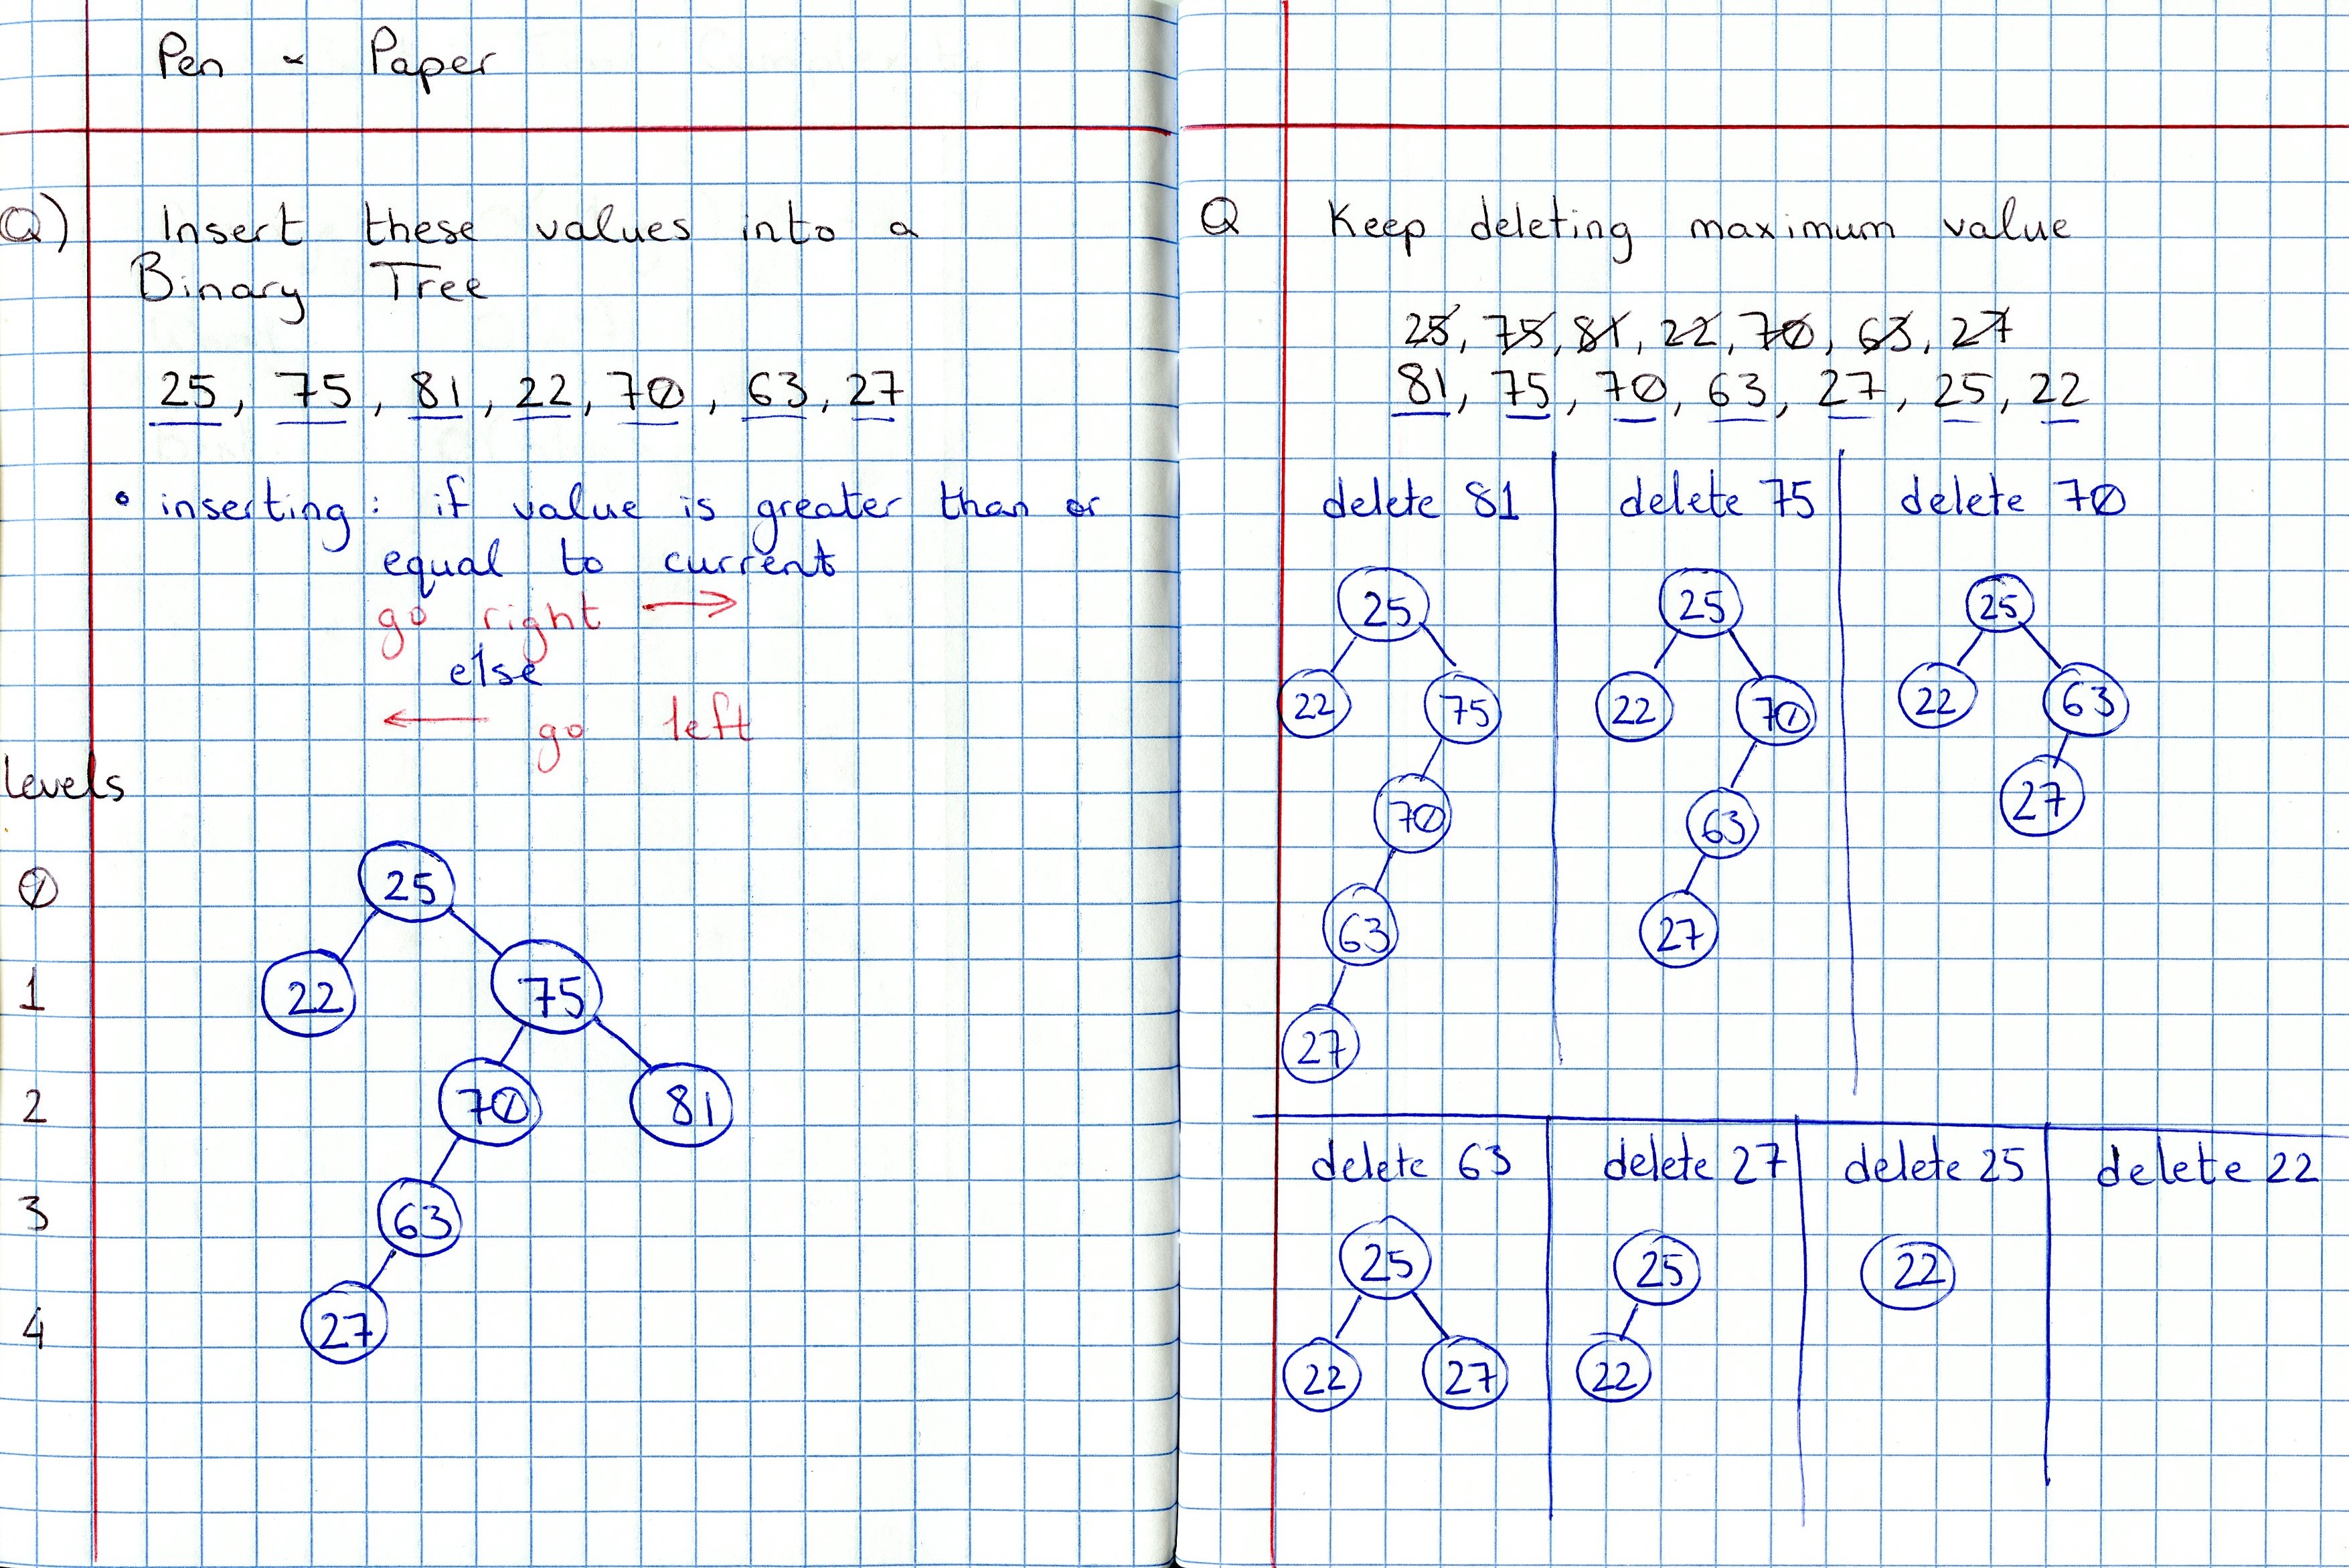 Pen ~ Paper
Q) Insert these values into a
Binary Tree
25, 75, 81, 22, 70, 63, 27
• inserting: if value is greater than or
equal to current
go right →
else
← go left
levels
0
25
1
22 75
2
70 81
3
63
4
27
Q Keep deleting maximum value
25, 75, 81, 22, 70, 63, 27
81, 75, 70, 63, 27, 25, 22
delete 81
25
22 75
70
63
27
delete 75
25
22 70
63
27
delete 70
25
22 63
27
delete 63
25
22 27
delete 27
25
22
delete 25
22
delete 22